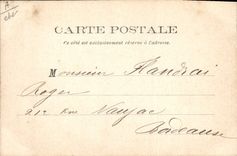 CARTE POSTALE
Ce côté est exclusivement réservé à l'adresse.
Monsieur
Roger
212 Rue Naujac
Bordeaux